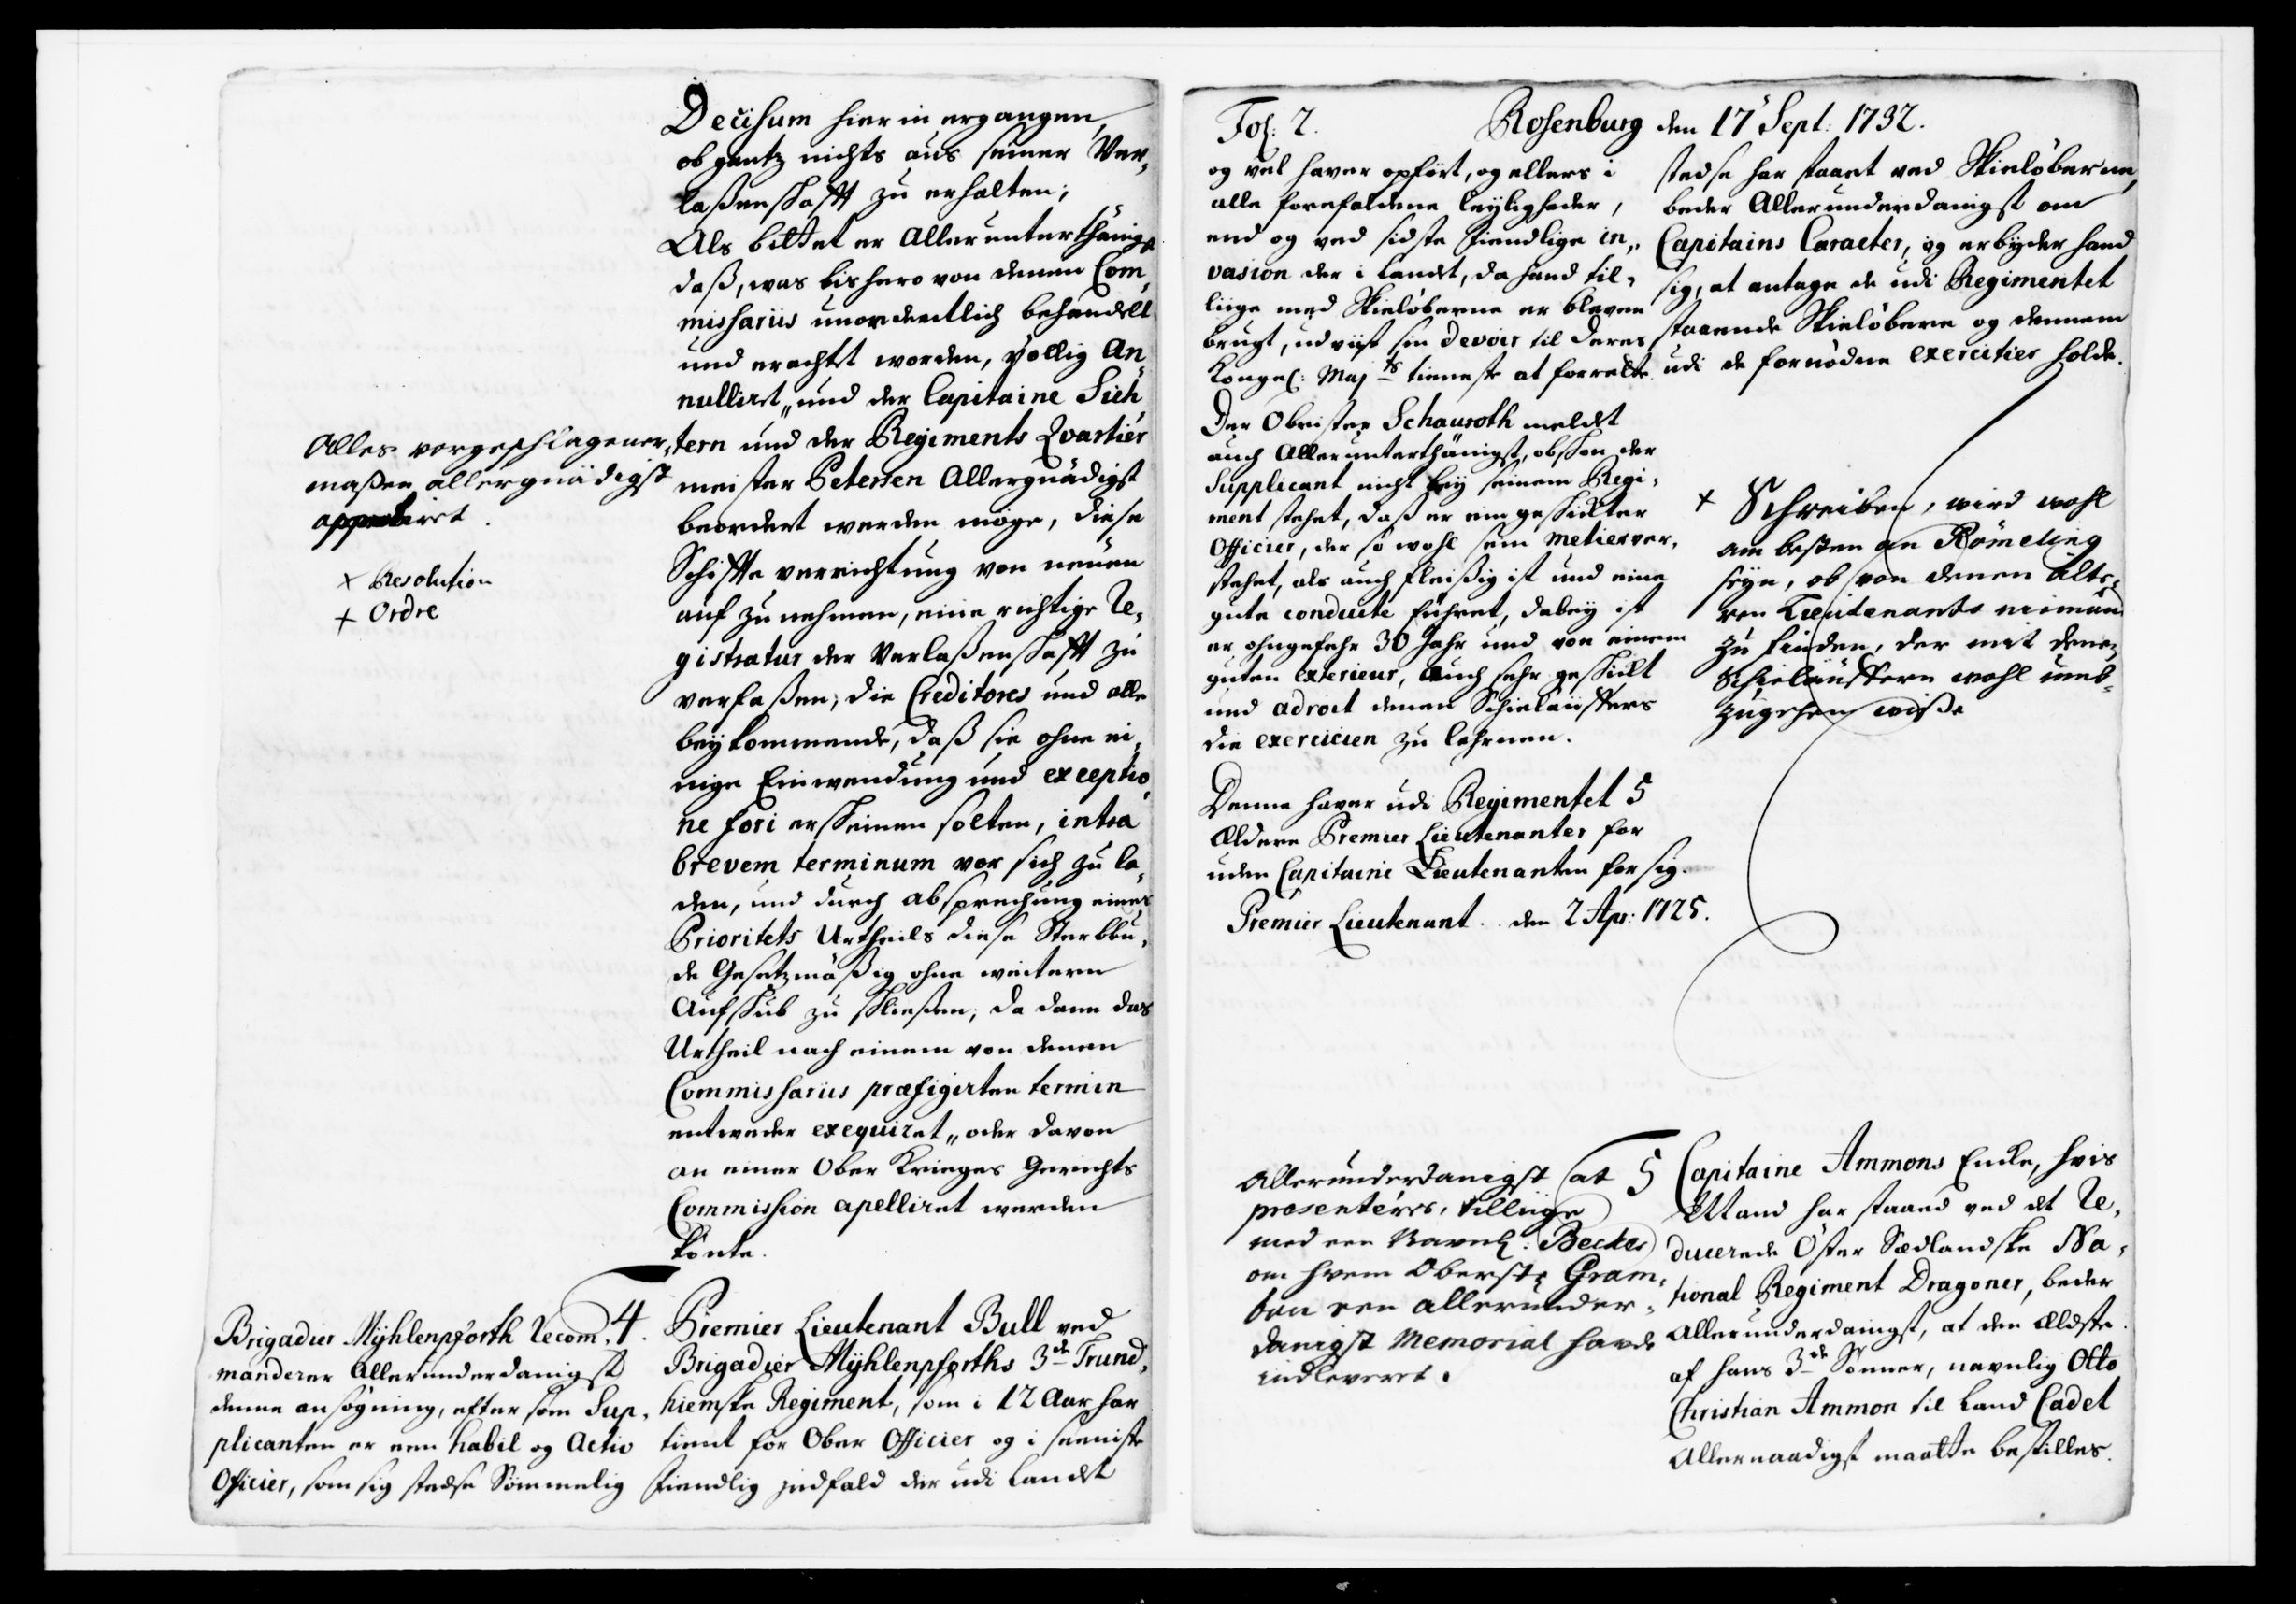 Decisum hierin ergangen,
ob gantz nichts aus seiner Ver„
laßenschafft zu erhalten;
Als bittet er Allerunterthänigst
daß, was bishero von denen Com„
missariis unordentlich behandelt
und erachtet worden, völlig an„
nulliret, und der Capitaine Sich„
tern und der Regiments Qvartier
meister Petersen Allergnädigst
beordert werden möge, diese
Schiffte verrichtung von neuen
auf zu nehmen, eine richtige Re„
gistratur der Verlaßenschafft zu
verfaßen, die Creditores und alle
beykommende, daß sie ohne ei„
nige Einwendung und exceptio„
ne fori erscheinen solten, intra
brevem terminum vor sich zu la„
den, und durch absprechung eines
Prioritets Urtheils diese Sterbbu„
de Gesetzmäßig ohne weitern
Aufschub zu schließen; da dann das
Urtheil nach einem von denen
Commissariis præfigirten termin
entweder exequiret, oder davon
an einer Ober Krieges Gerichts
Commission apelliret werden
könte.
Alles vorgeschlagener„
maßen allergnädigst
approbiret.
+ Resolution
+ Ordre
Brigadier Mÿhlenpforth recom„
manderer Allerunderdanigst
denne ansögning, efter som Sup„
plicanten er een habil og Activ
Officier, som sig stedse Sömmelig
4. Premier Lieutenant Bull ved
Brigadier Mÿhlenpforths 3de Trund„
hiemske Regiment, som i 12 Aar har
tient for Ober Officier og i seeniste
fiendlig indfald der udi Landet
Fol: 2. Rosenburg den 17 Sept: 1732.
og vel haver opfört, og ellers i
alle forefaldene leyligheder,
end og ved sidste fiendlige in„
vasion der i Landet, da hand til„
liige med Skielöberne er bleven
brugt, udviist sin devoir til Deres
Kongel: Majts tieneste at forrette.
Der Obrister Schauroth meldet
auch Allerunterthänigst, obschon der
Supplicant nicht bey seinem Regi„
ment stehet, daß er ein geschickter
Officier, der so wohl sein metier ver„
stehet, als auch fleißig ist und eine
gute conduite führet, dabey ist
er ohngefehr 30 Jahr und von einem
guten exterieur, auch sehr geschickt
und adroit denen Schieläuffers
die exercicien zu lehrnen.
Denne haver udi Regimentet 5
Ældere Premier Lieutenanter for
uden Capitaine Lieutenanten for sig.
Premier Lieutenant den 2 Apr: 1725.
stedse har staaet ved Skielöberne,
beder Allerunderdanigst om
Capitains Caracter, og erbyder hand
sig, at antage de udi Regimentet
staaende Skielöbere og dennem
udi de fornödne exercitier holde.
+ Schreiben, wird wohl
am besten an Römeling
seyn, ob von denen älte„
ren Lieutenants niemand
zu finden, der mit denen
Schieläuffern wohl umb„
zugehen wiße
Allerunderdanigst at
præsenteres, tilliige
med een Navnl: Becker
om hvem Oberste Gram„
ban een allerunder„
danigst Memorial havde
indleveret.
5 Capitaine Ammons Encke, hvis
Mand har staaed ved det Re„
ducerede Öster Siedlandske Na„
tional Regiment Dragoner, beder
Allerunderdanigst, at den Ældste
af hans 3de Sönner, navnlig Otto
Christian Ammon til Land Cadet
Allernaadigst maatte bestilles.